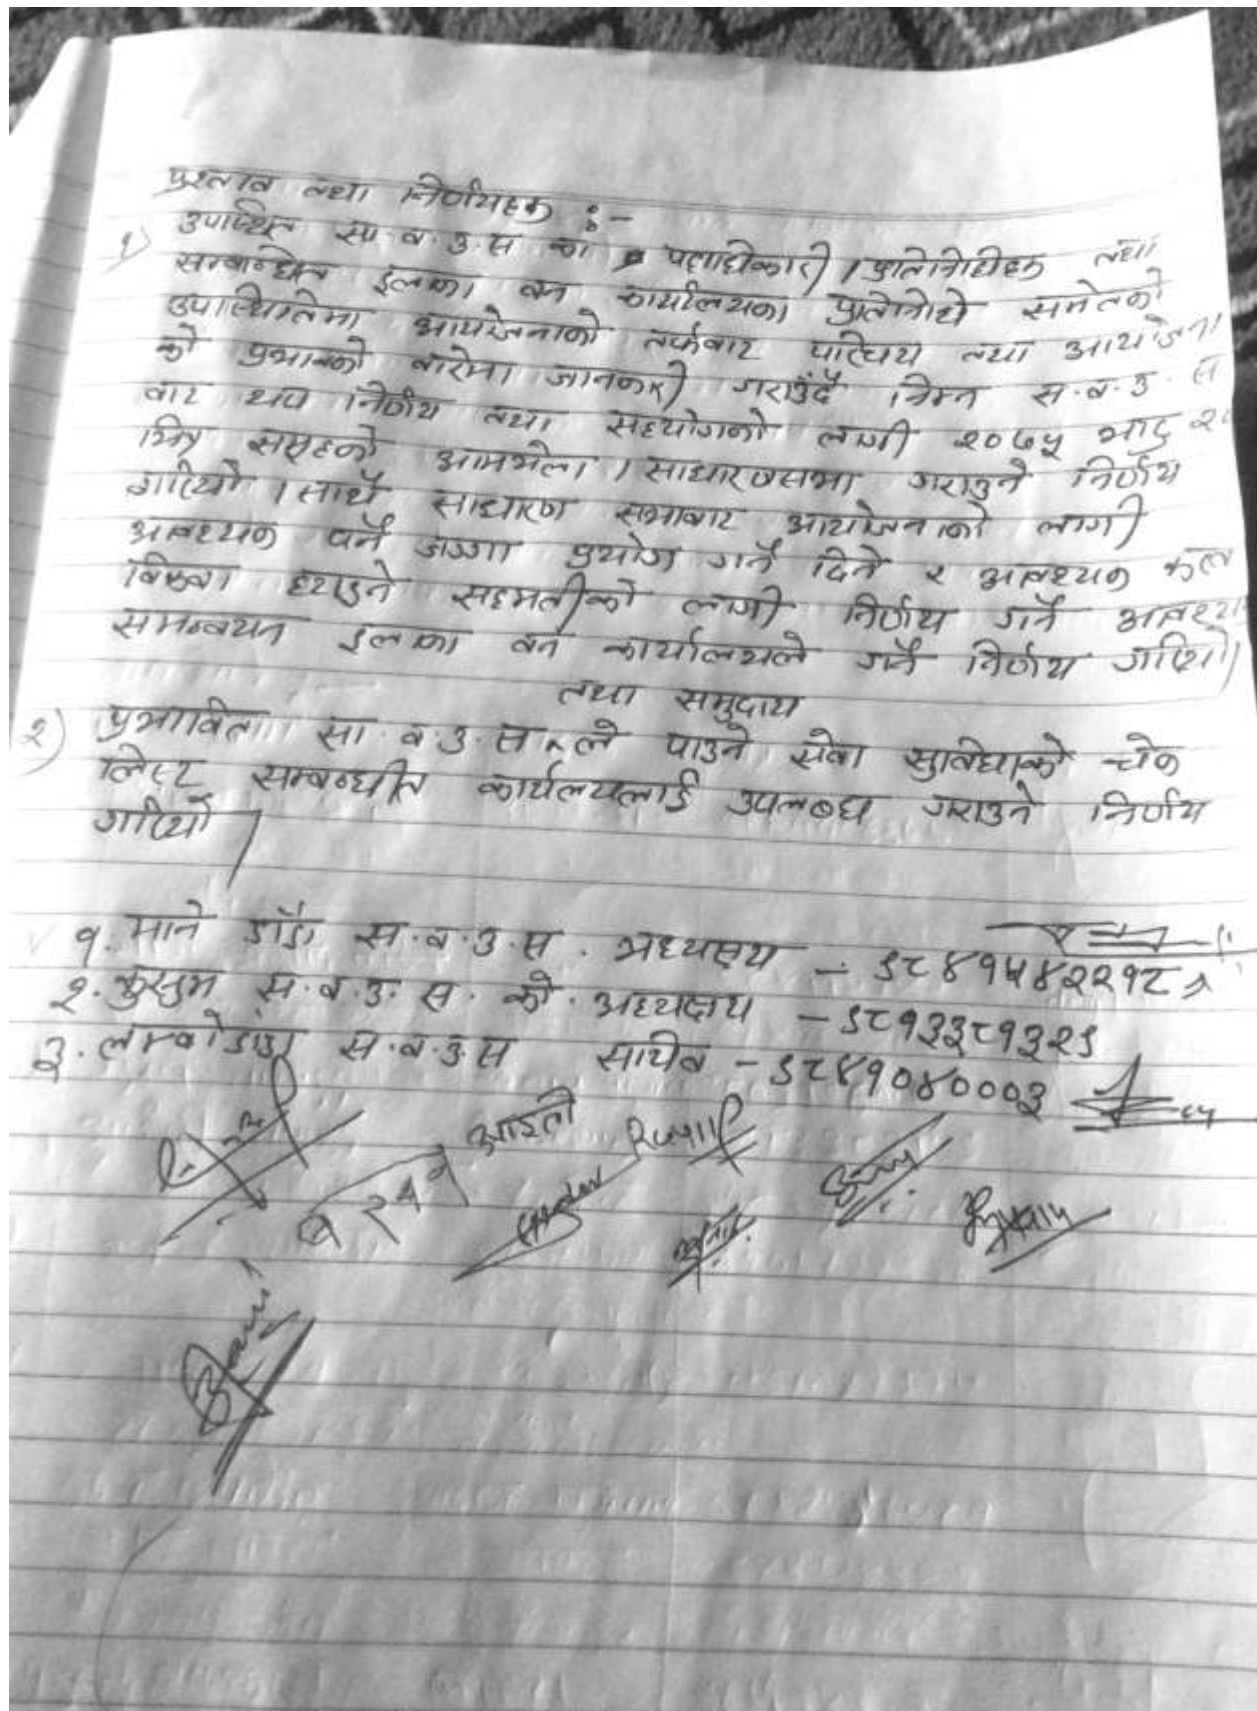 प्रस्ताव तथा निर्णयहरू :-
१) उपस्थित सा.व.उ.स का पदाधिकारी / प्रतिनिधीहरू तथा
सम्बन्धित इलाका वन कार्यालयका प्रतिनिधि समेतको
उपस्थितिमा आयोजनाको तर्फबाट परिचय तथा आयोजना
को प्रभावको बारेमा जानकारी गराउँदै निम्न स.व.उ.स
बाट थप निर्णय तथा सहयोगको लागी २०७५ भाद्र २
भित्र समूहको आमभेला / साधारणसभा गराउने निर्णय
गरियो । साथै साधारण सभाबाट आयोजनाको लागी
आवश्यक पर्ने जग्गा प्रयोग गर्न दिने र आवश्यक रूख
बिरुवा हटाउने सहमतीको लागी निर्णय गर्न
समन्वयन इलाका वन कार्यालयले गर्ने निर्णय गरियो ।
तथा समुदाय
२) प्रभावित सा.व.उ.स ले पाउने सेवा सुविधाको चेक
लिस्ट सम्बन्धीत कार्यलयलाई उपलब्ध गराउने निर्णय
गरियो ।
१. माने डाँडा स.व.उ.स. अध्यक्ष्य - ९८४१५४२२१८
२. कुसुम स.व.उ.स. को अध्यक्षय - ९८१३३८१३२९
३. लाम्बोडाँडा स.व.उ.स सचिव - ९८४१०४०००३
आइतो